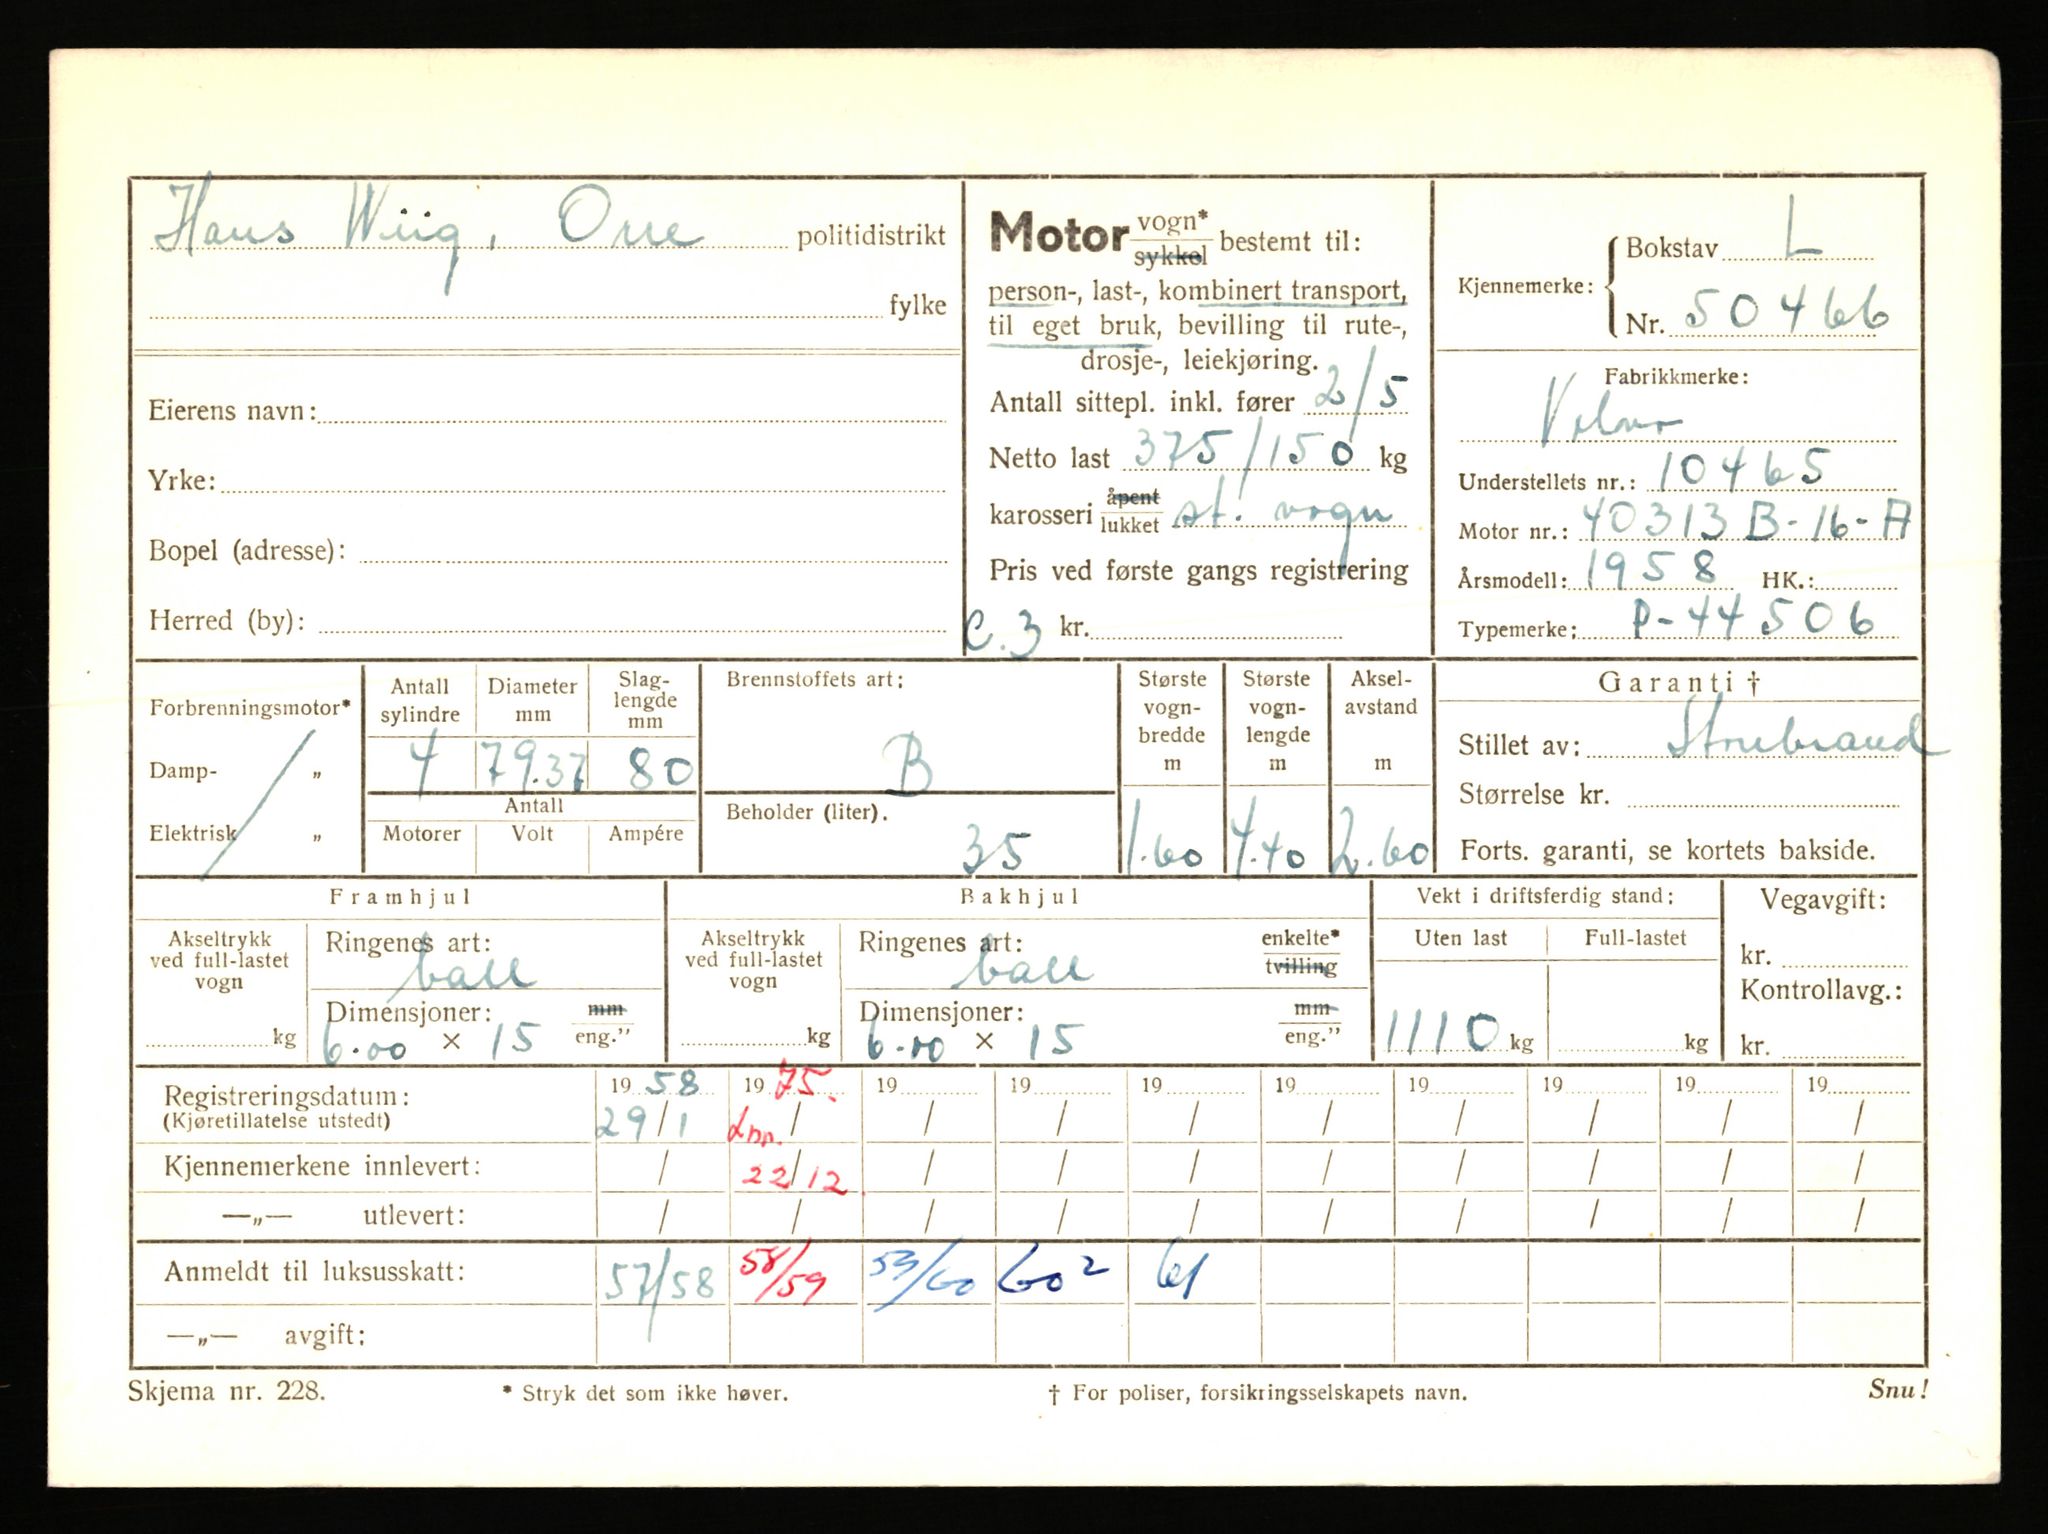 Hans Wiig, Orre politidistrikt
fylke
Eierens navn:
Yrke:
Bopel (adresse):
Herred (by):
Motor vogn*
sykkel bestemt til:
person-, last-, kombinert transport,
til eget bruk, bevilling til rute-,
drosje-, leiekjøring.
Antall sittepl. inkl. fører 2/5
Netto last 375/150 kg
karosseri åpent
lukket st. vogn
Pris ved første gangs registrering
C.3 kr.
Kjennemerke: Bokstav L
Nr. 50466
Fabrikkmerke:
Volvo
Understellets nr.: 10465
Motor nr.: 40313 B-16-A
Årsmodell: 1958 HK.:
Typemerke: P-44506
Forbrenningsmotor*
Damp- „
Elektrisk „
Antall sylindre Diameter mm Slaglengde mm
4 79.37 80
Antall
Motorer Volt Ampére
Brennstoffets art:
B
Beholder (liter).
35
Største vognbredde m
1.60
Største vognlengde m
4.40
Akselavstand m
2.60
Garanti †
Stillet av: Storebrand
Størrelse kr.
Forts. garanti, se kortets bakside.
Framhjul
Akseltrykk ved full-lastet vogn
kg
Ringenes art:
ball
Dimensjoner: mm
6.00 × 15 eng.”
Bakhjul
Akseltrykk ved full-lastet vogn
kg
Ringenes art: enkelte*
ball tvilling
Dimensjoner: mm
6.00 × 15 eng.”
Vekt i driftsferdig stand:
Uten last Full-lastet
1110 kg kg
Vegavgift:
kr.
Kontrollavg.:
kr.
Registreringsdatum: 19 58 19 75. 19 19 19 19 19 19 19 19
(Kjøretillatelse utstedt) 29/1 / / / / / / / / /
Kjennemerkene innlevert: / 22/12 / / / / / / / /
—„— utlevert: / / / / / / / / / /
Anmeldt til luksusskatt: 57/58 58/59 59/60 60² 61
—„— avgift:
Skjema nr. 228. * Stryk det som ikke høver. † For poliser, forsikringsselskapets navn. Snu!